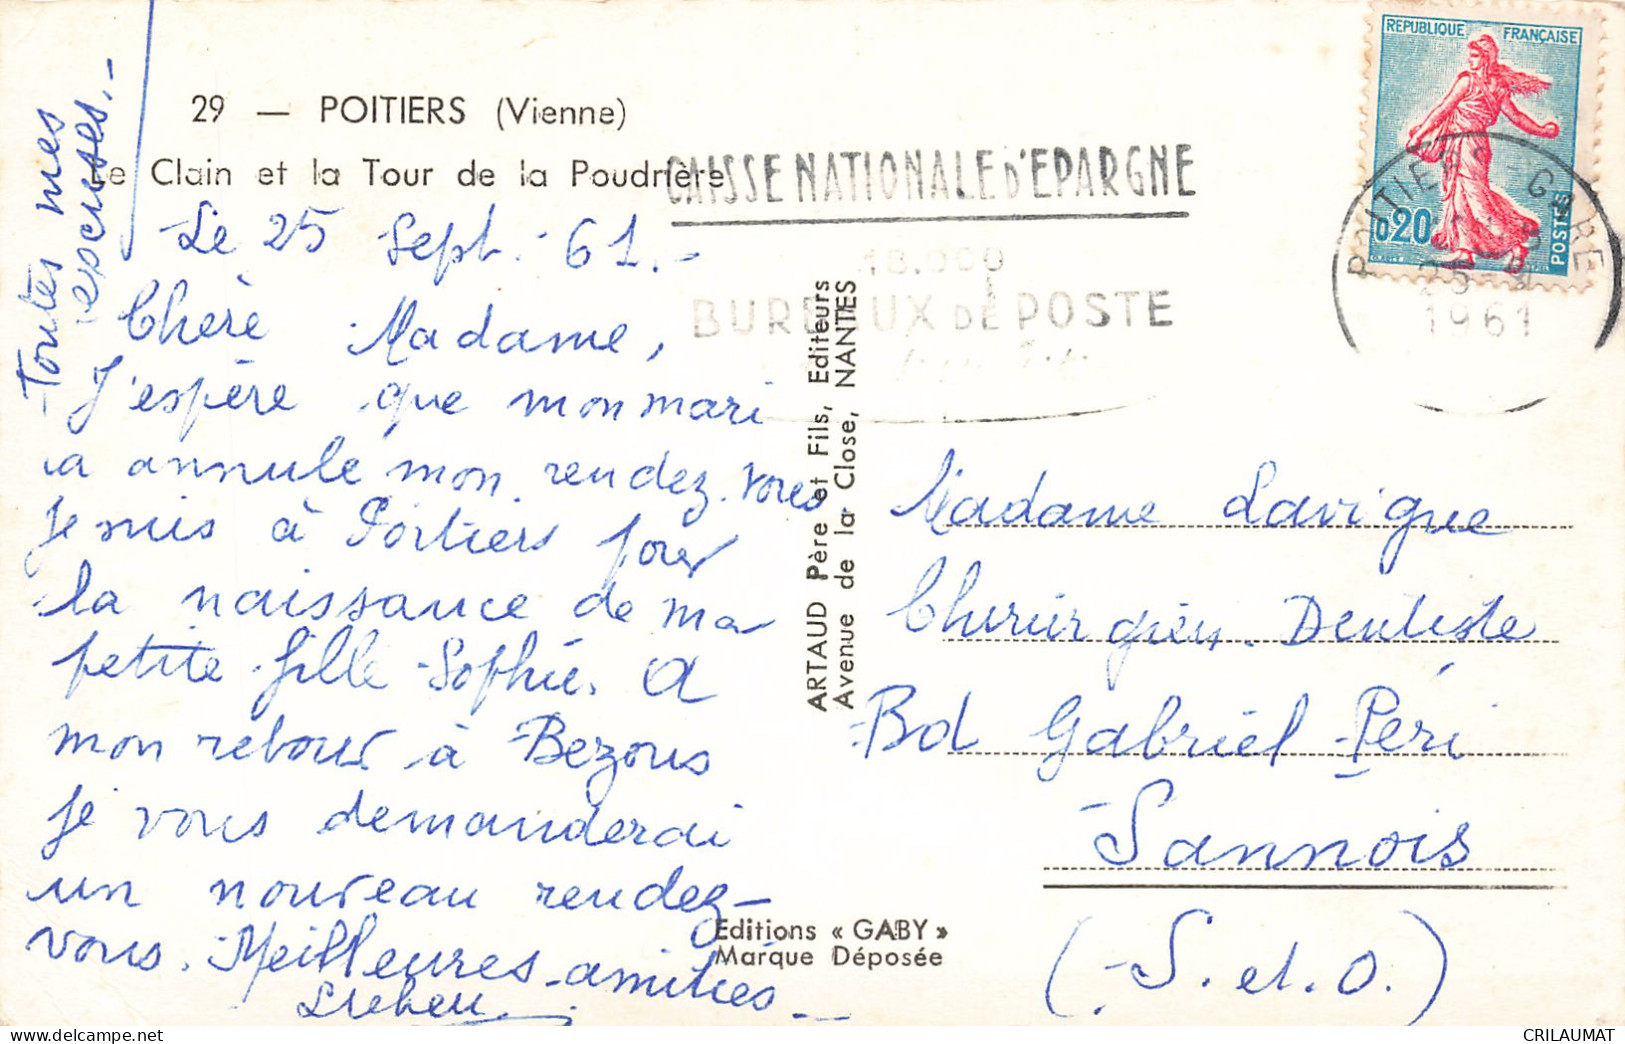 29 — POITIERS (Vienne)
Le Clain et la Tour de la Poudrière
Le 25 Sept. 61.-
Chère Madame,
J'espère que mon mari
a annulé mon rendez-vous
Je suis à Poitiers pour
la naissance de ma
petite-fille Sophie. A
mon retour à Bezons
je vous demanderai
un nouveau rendez-
vous. Meilleures amitiés
Toutes mes
excuses.-
ARTAUD Père et Fils, Editeurs
Avenue de la Close, NANTES
Editions « GABY »
Marque Déposée
REPUBLIQUE FRANÇAISE
0,20
POSTES
CAISSE NATIONALE D'EPARGNE
18.000
BUREAUX DE POSTE
POITIERS GARE
25-9
1961
Madame Lavigne
Chirurgien-Dentiste
Bd Gabriel Péri
Sannois
(S.et.O.)
CRILAUMAT